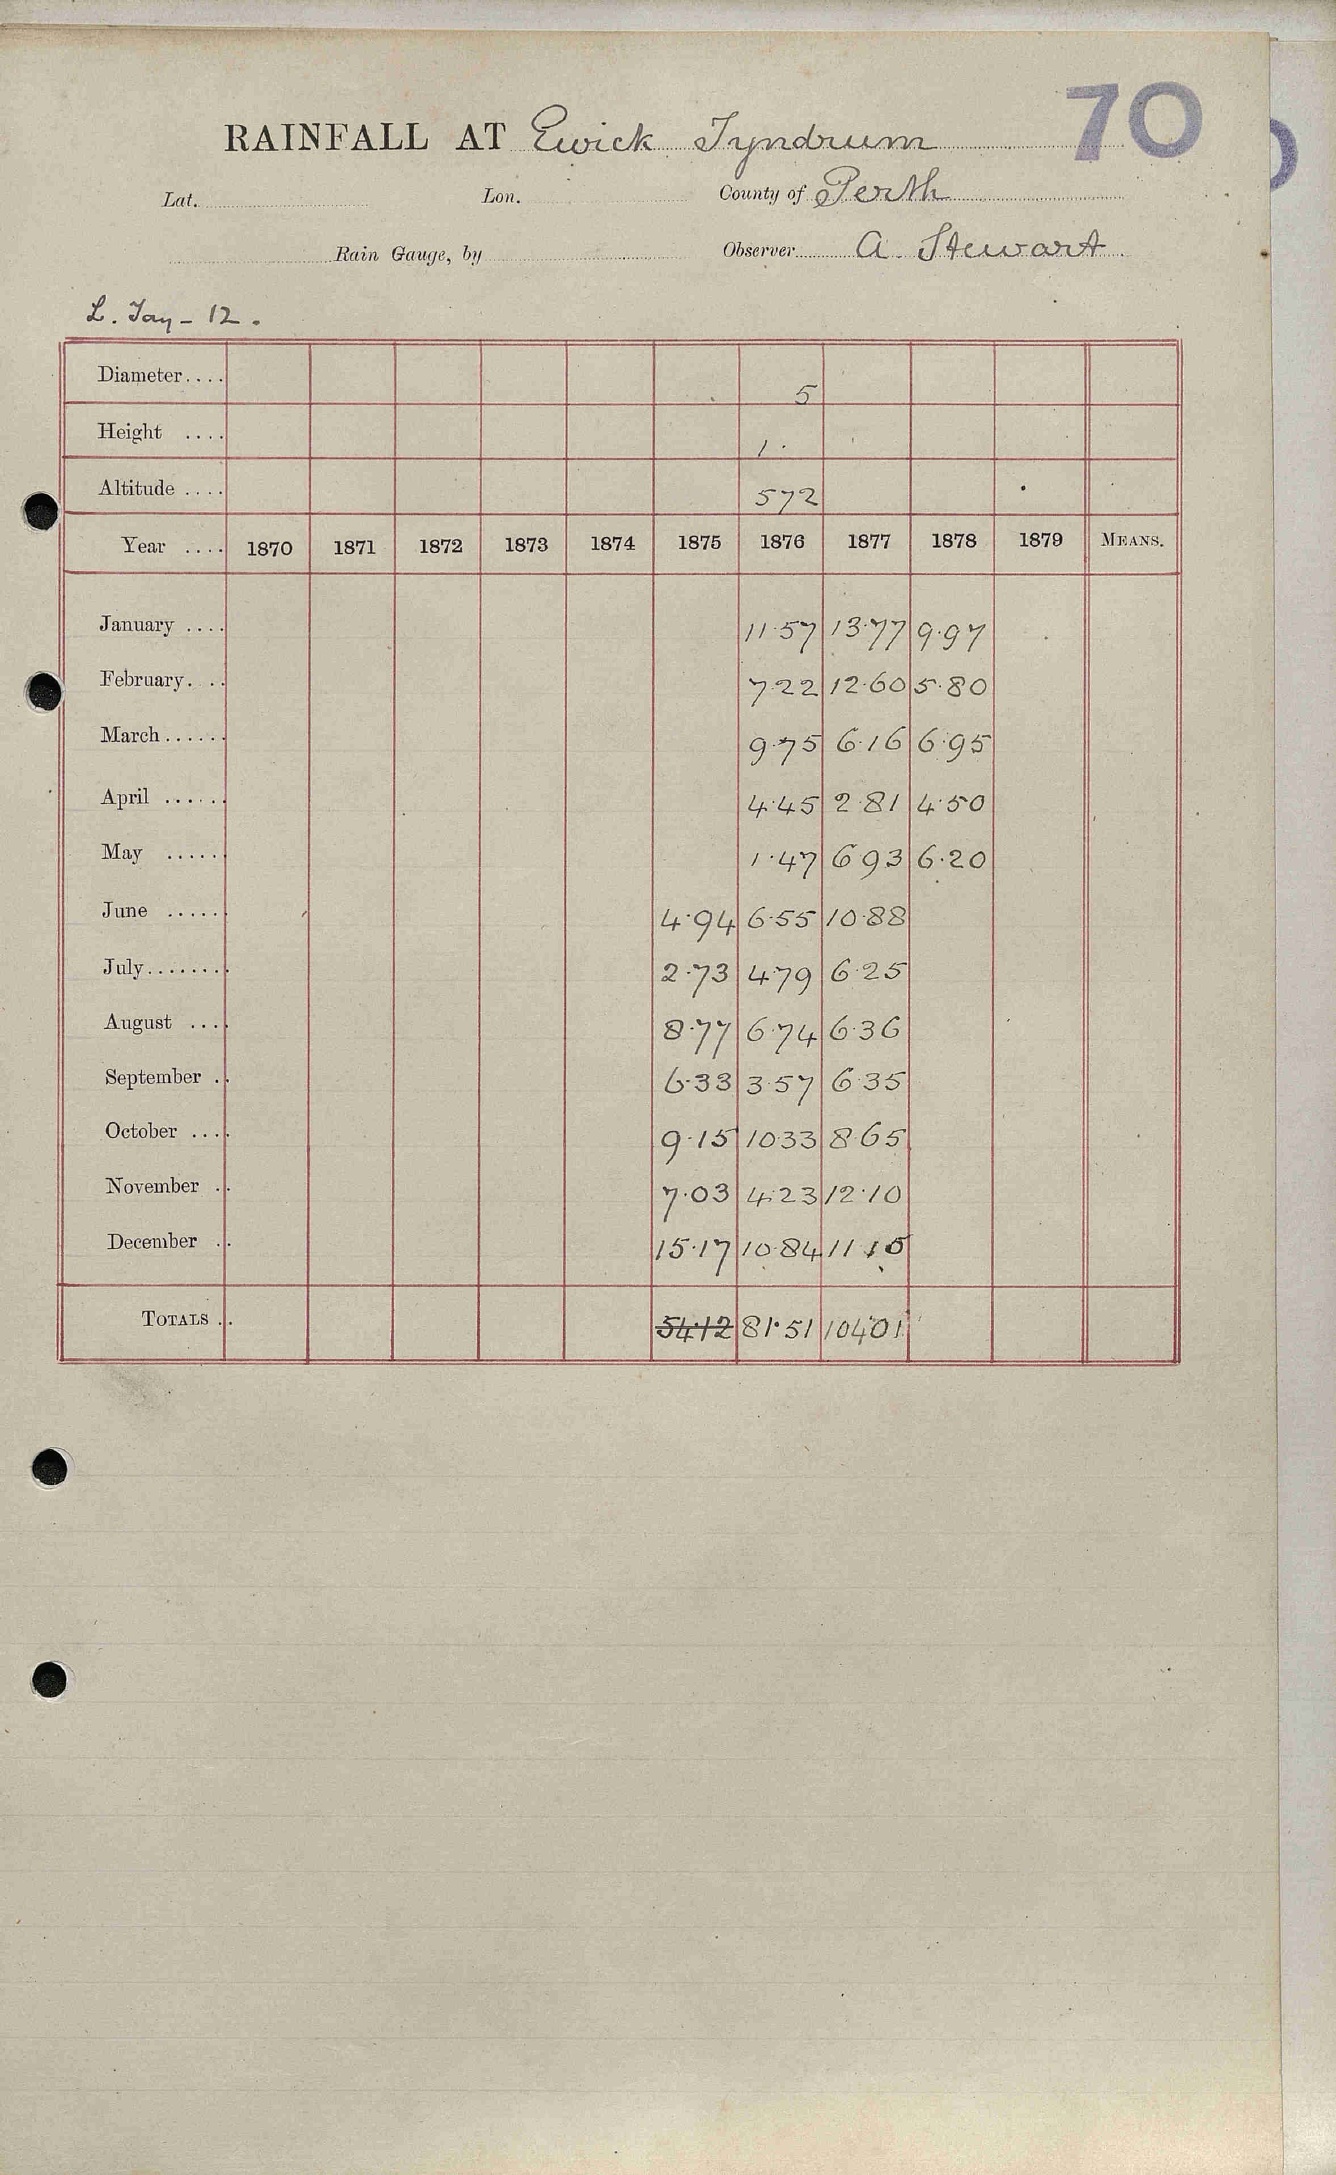 70
RAINFALL AT Ewick Tyndrum
Lat. Lon. County of Perth
Rain Gauge, by Observer A. Stewart
L. Tay - 12.
Diameter.... 5
Height .... 1.
Altitude .... 572
Year .... 1870 1871 1872 1873 1874 1875 1876 1877 1878 1879 MEANS.
January .... 11.57 13.77 9.97
February. .. 7.22 12.60 5.80
March...... 9.75 6.16 6.95
April ...... 4.45 2.81 4.50
May ...... 1.47 6.93 6.20
June ...... 4.94 6.55 10.88
July........ 2.73 4.79 6.25
August .... 8.77 6.74 6.36
September .. 6.33 3.57 6.35
October .... 9.15 10.33 8.65
November .. 7.03 4.23 12.10
December .. 15.17 10.84 11.15
TOTALS .. 54.12 81.51 104.01